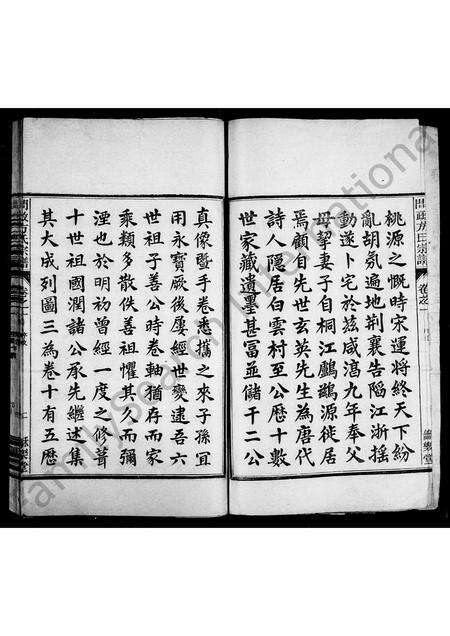 桃源之慨時宋運將終天下紛
亂胡氛遍地荆襄告陷江浙搖
動遂卜宅於茲咸湻九年奉父
母挈妻子自桐江鸕鷀源徙居
焉顧自先世玄英先生為唐代
詩人隱居白雲村至公歷十數
世家藏遺墨甚富並儲千二公
真像暨手卷悉攜之來子孫宜
用永寶厥後屢經世變逮吾六
世祖子善公時卷軸猶存而家
乘類多散佚善祖懼其久而彌
湮也於明初曾經一度之修葺
十世祖國潤諸公承先繼述集
其大成列圖三為卷十有五歷
方氏宗譜
卷之一
FamilySearch International